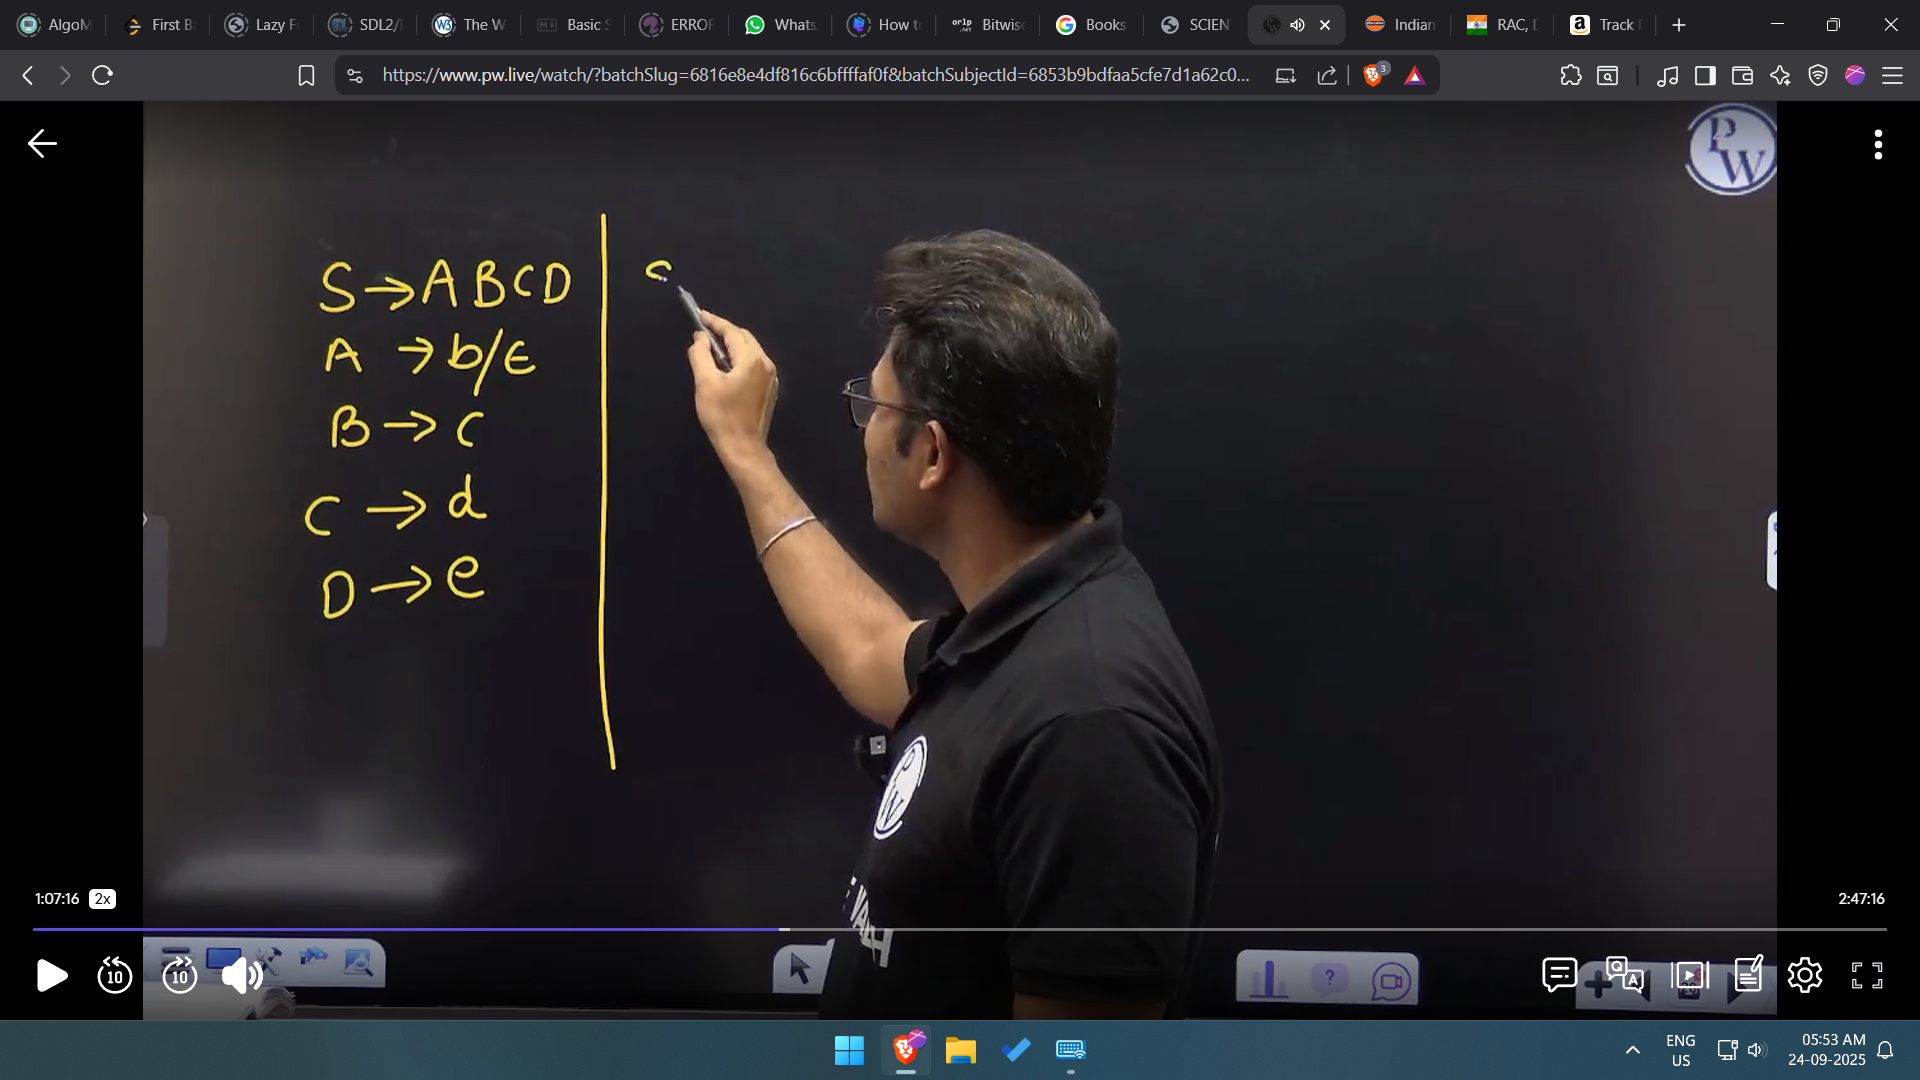 AlgoM
First B
Lazy F
SDL2/
The W
Basic S
ERROR
Whats
How t
orlp .net Bitwise
Books
SCIEN
Indian
RAC, D
Track
https://www.pw.live/watch/?batchSlug=6816e8e4df816c6bffffaf0f&batchSubjectId=6853b9bdfaa5cfe7d1a62c0...
3
PW
S → A B C D
A → b/ε
B → c
C → d
D → e
1:07:16 2x
2:47:16
10 10
ENG
US
05:53 AM
24-09-2025